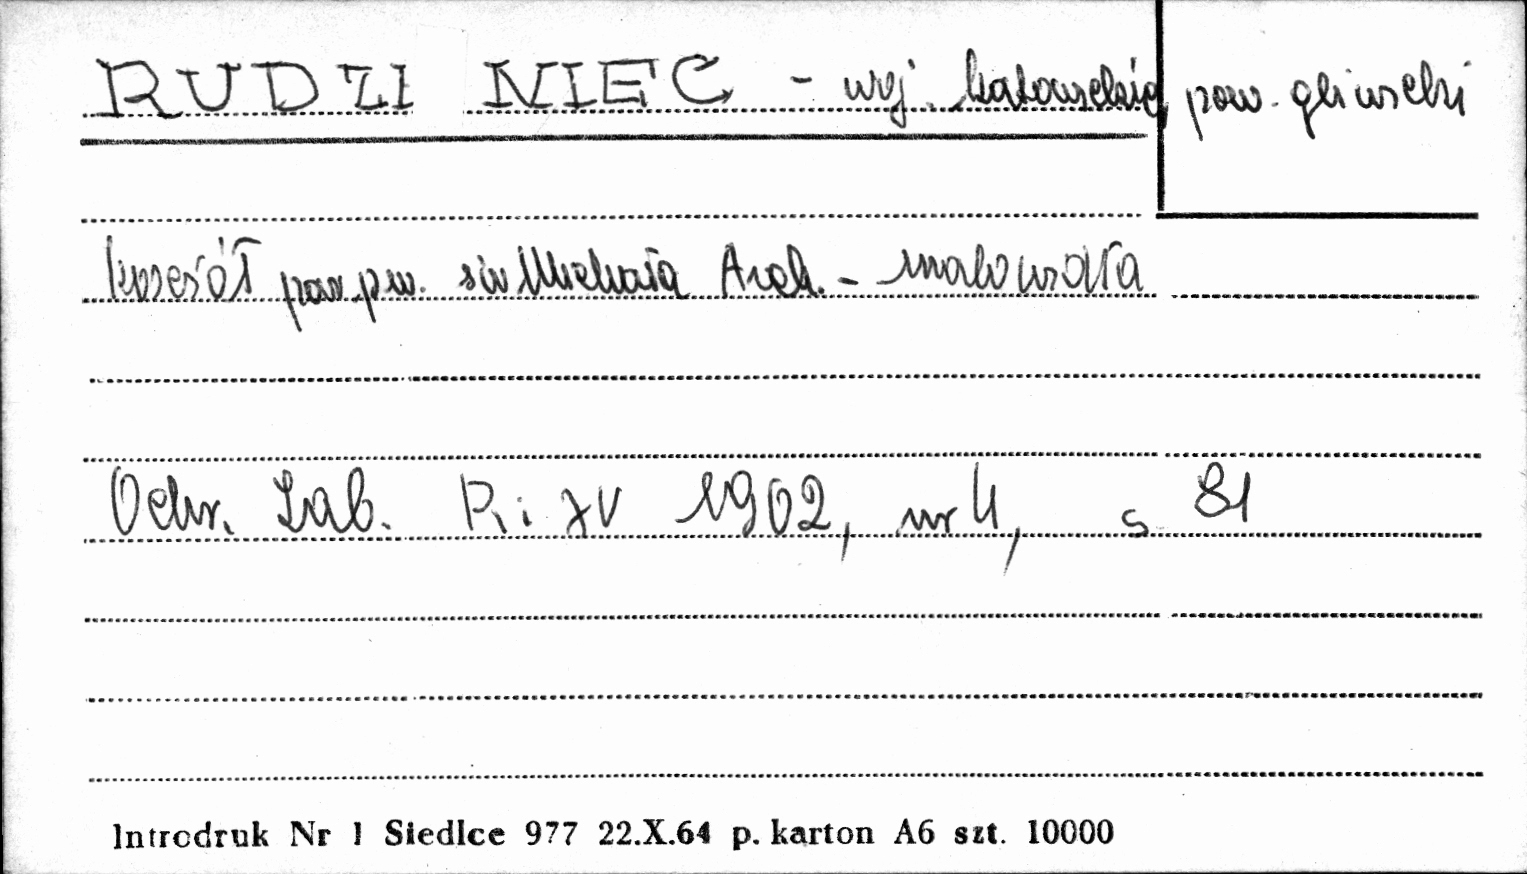 RUDZINIEC - woj. katowickie, pow. gliwicki
kościół par. pw. św Michała Arch. - malowidła
Ochr. Zab. R. XV 1902, nr 4, s 81
Introdruk Nr 1 Siedlce 977 22.X.64 p. karton A6 szt. 10000